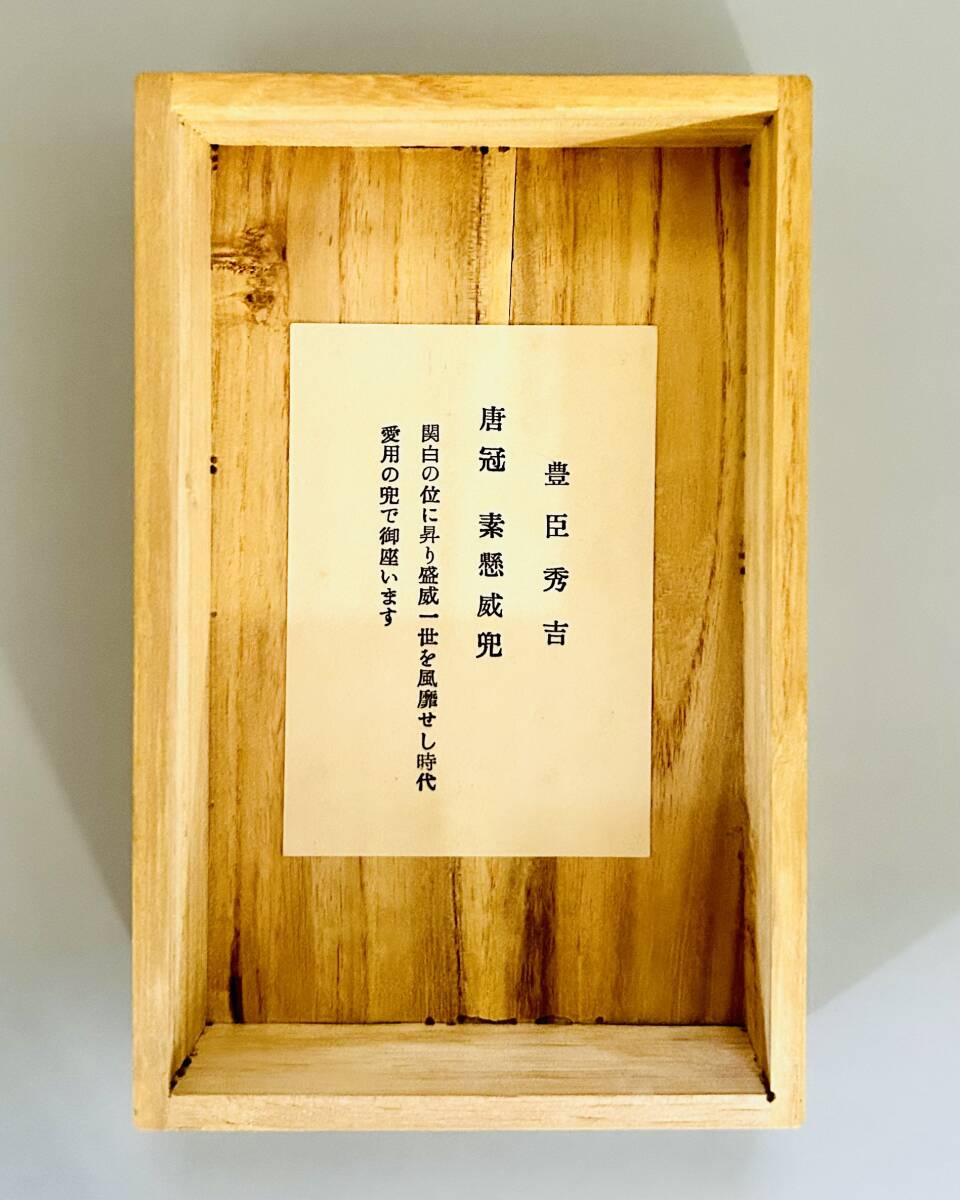 豊臣秀吉
唐冠　素懸威兜
関白の位に昇り盛威一世を風靡せし時代
愛用の兜で御座います